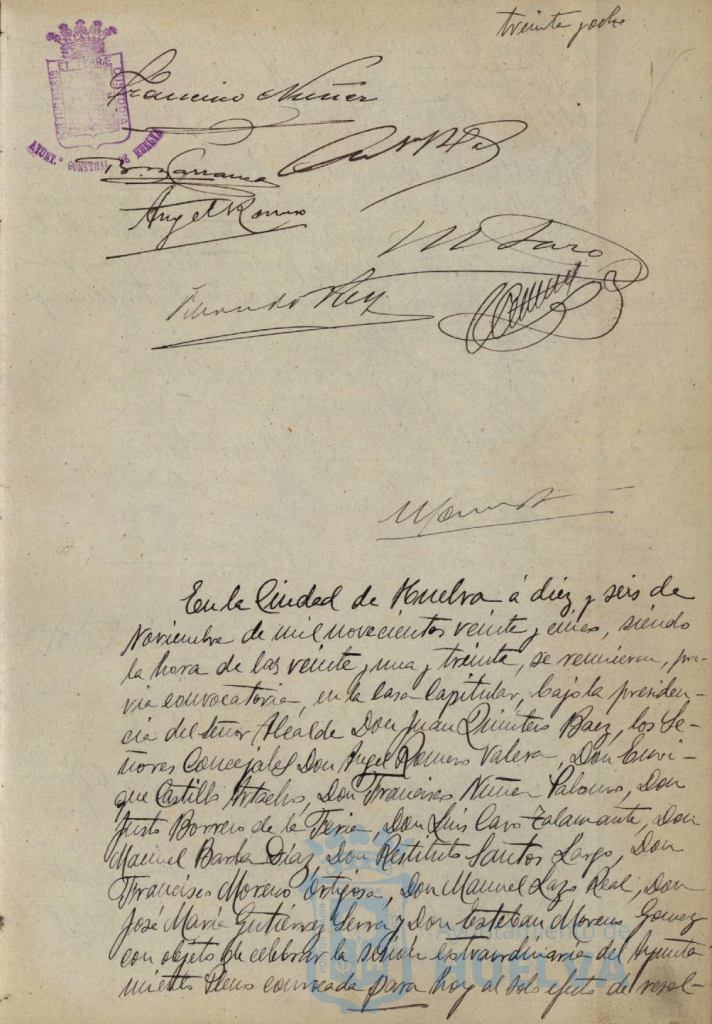 treinta y ocho
Francisco Nuñez
AYUNT.º CONSTNAL DE HUELVA
Angel Romero
M Lazo
En la Ciudad de Huelva á diez y seis de
Noviembre de mil novecientos veinte y cinco, siendo
la hora de las veinte y una y treinta, se reunieron, pre-
via convocatoria, en la Casa Capitular, bajo la presiden-
cia del Señor Alcalde Don Juan Quintero Baez, los Se-
ñores Concejales Don Angel Romero Valera, Don Enri-
que Castillo Artacho, Don Francisco Nuñez Palomo, Don
Justo Borrero de la Feria, Don Luis Caro Talamante, Don
Manuel Barba Díaz, Don Restituto Santos Largo, Don
Francisco Moreno Ortigosa, Don Manuel Lazo Real, Don
José María Gutiérrez Serra y Don Esteban Moreno Gomez
con objeto de celebrar la sesión extraordinaria del Ayunta
miento Pleno convocada para hoy al solo efecto de resol-
Ayuntamiento de
HUELVA